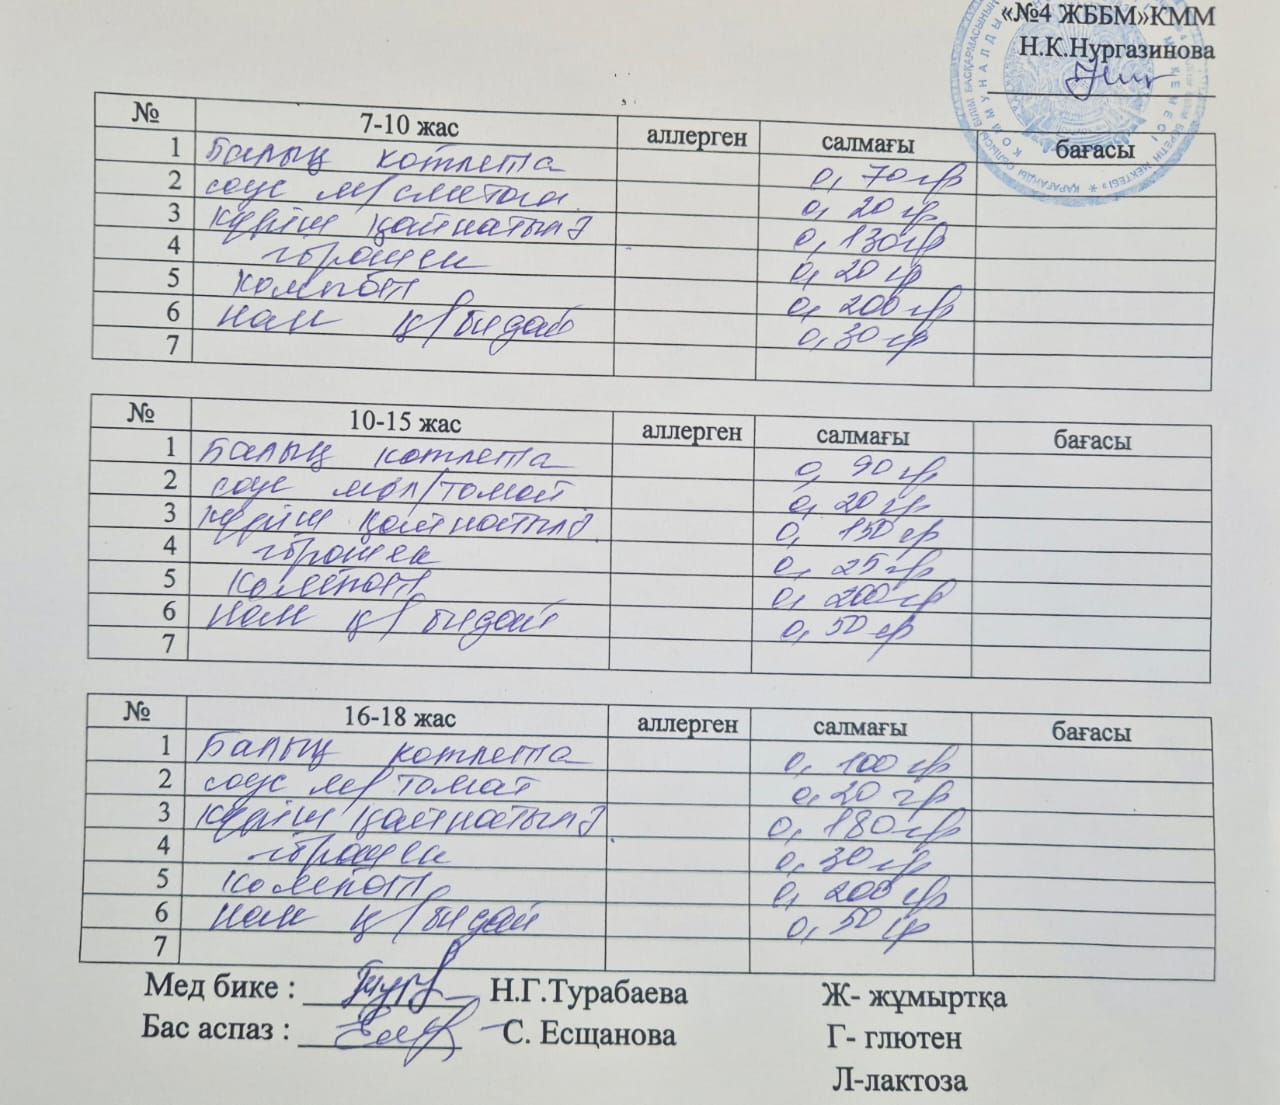 «№4 ЖББМ»КММ
Н.К.Нургазинова
№ 7-10 жас аллерген салмағы бағасы
1 Балық котлета 0, 70 гр
2 соус м/сметан 0, 20 гр
3 күріш қайнатылғ 0, 130 гр
4 горошек 0, 20 гр
5 компот 0, 200 гр
6 нан қ/бидай 0, 30 гр
7
№ 10-15 жас аллерген салмағы бағасы
1 Балық котлета 0, 90 гр
2 соус мол/томат 0, 20 гр
3 күріш қайнатылғ 0, 150 гр
4 горошек 0, 25 гр
5 компот 0, 200 гр
6 нан қ/бидай 0, 50 гр
7
№ 16-18 жас аллерген салмағы бағасы
1 Балық котлета 0, 100 гр
2 соус м/томат 0, 20 гр
3 күріш қайнатылғ 0, 180 гр
4 горошек 0, 30 гр
5 компот 0, 200 гр
6 нан қ/бидай 0, 50 гр
7
Мед бике : Н.Г.Турабаева Ж- жұмыртқа
Бас аспаз : С. Есщанова Г- глютен
Л-лактоза